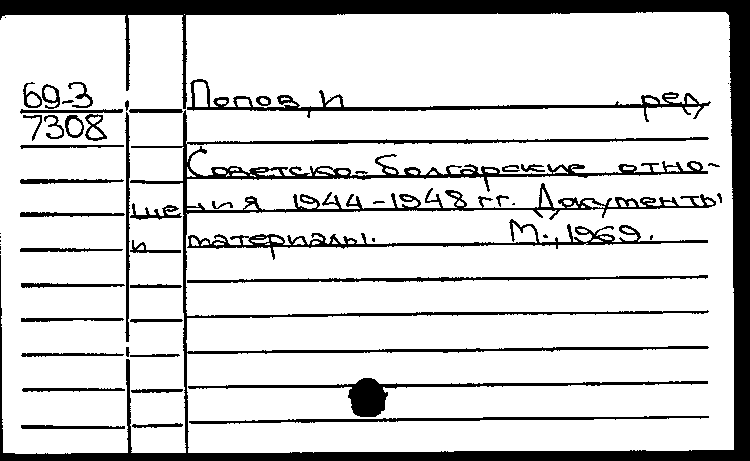 69-3 Попов, И ред.
7308
Советско-болгарские отно-
шения 1944-1948 гг. Документы
и материалы. М., 1969.